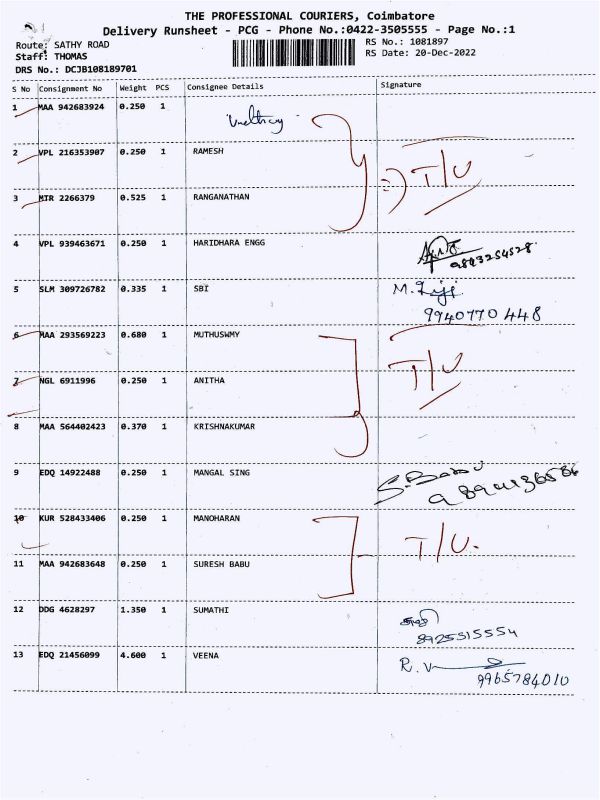 THE PROFESSIONAL COURIERS, Coimbatore
Delivery Runsheet - PCG - Phone No.:0422-3505555 - Page No.:1
Route: SATHY ROAD
RS No.: 1081897
Staff: THOMAS
RS Date: 20-Dec-2022
DRS No.: DCJB108189701
S No Consignment No Weight PCS Consignee Details Signature
1 MAA 942683924 0.250 1
2 VPL 216353907 0.250 1 RAMESH T/U
3 MTR 2266379 0.525 1 RANGANATHAN
4 VPL 939463671 0.250 1 HARIDHARA ENGG
9843254528
5 SLM 309726782 0.335 1 SBI M.
9940770 448
6 MAA 293569223 0.680 1 MUTHUSWMY
7 NGL 6911996 0.250 1 ANITHA T/U
8 MAA 564402423 0.370 1 KRISHNAKUMAR
9 EDQ 14922488 0.250 1 MANGAL SING S. Babu
10 KUR 528433406 0.250 1 MANOHARAN T/U.
11 MAA 942683648 0.250 1 SURESH BABU
12 DDG 4628297 1.350 1 SUMATHI
8925515554
13 EDQ 21456099 4.600 1 VEENA R.V
9965784010